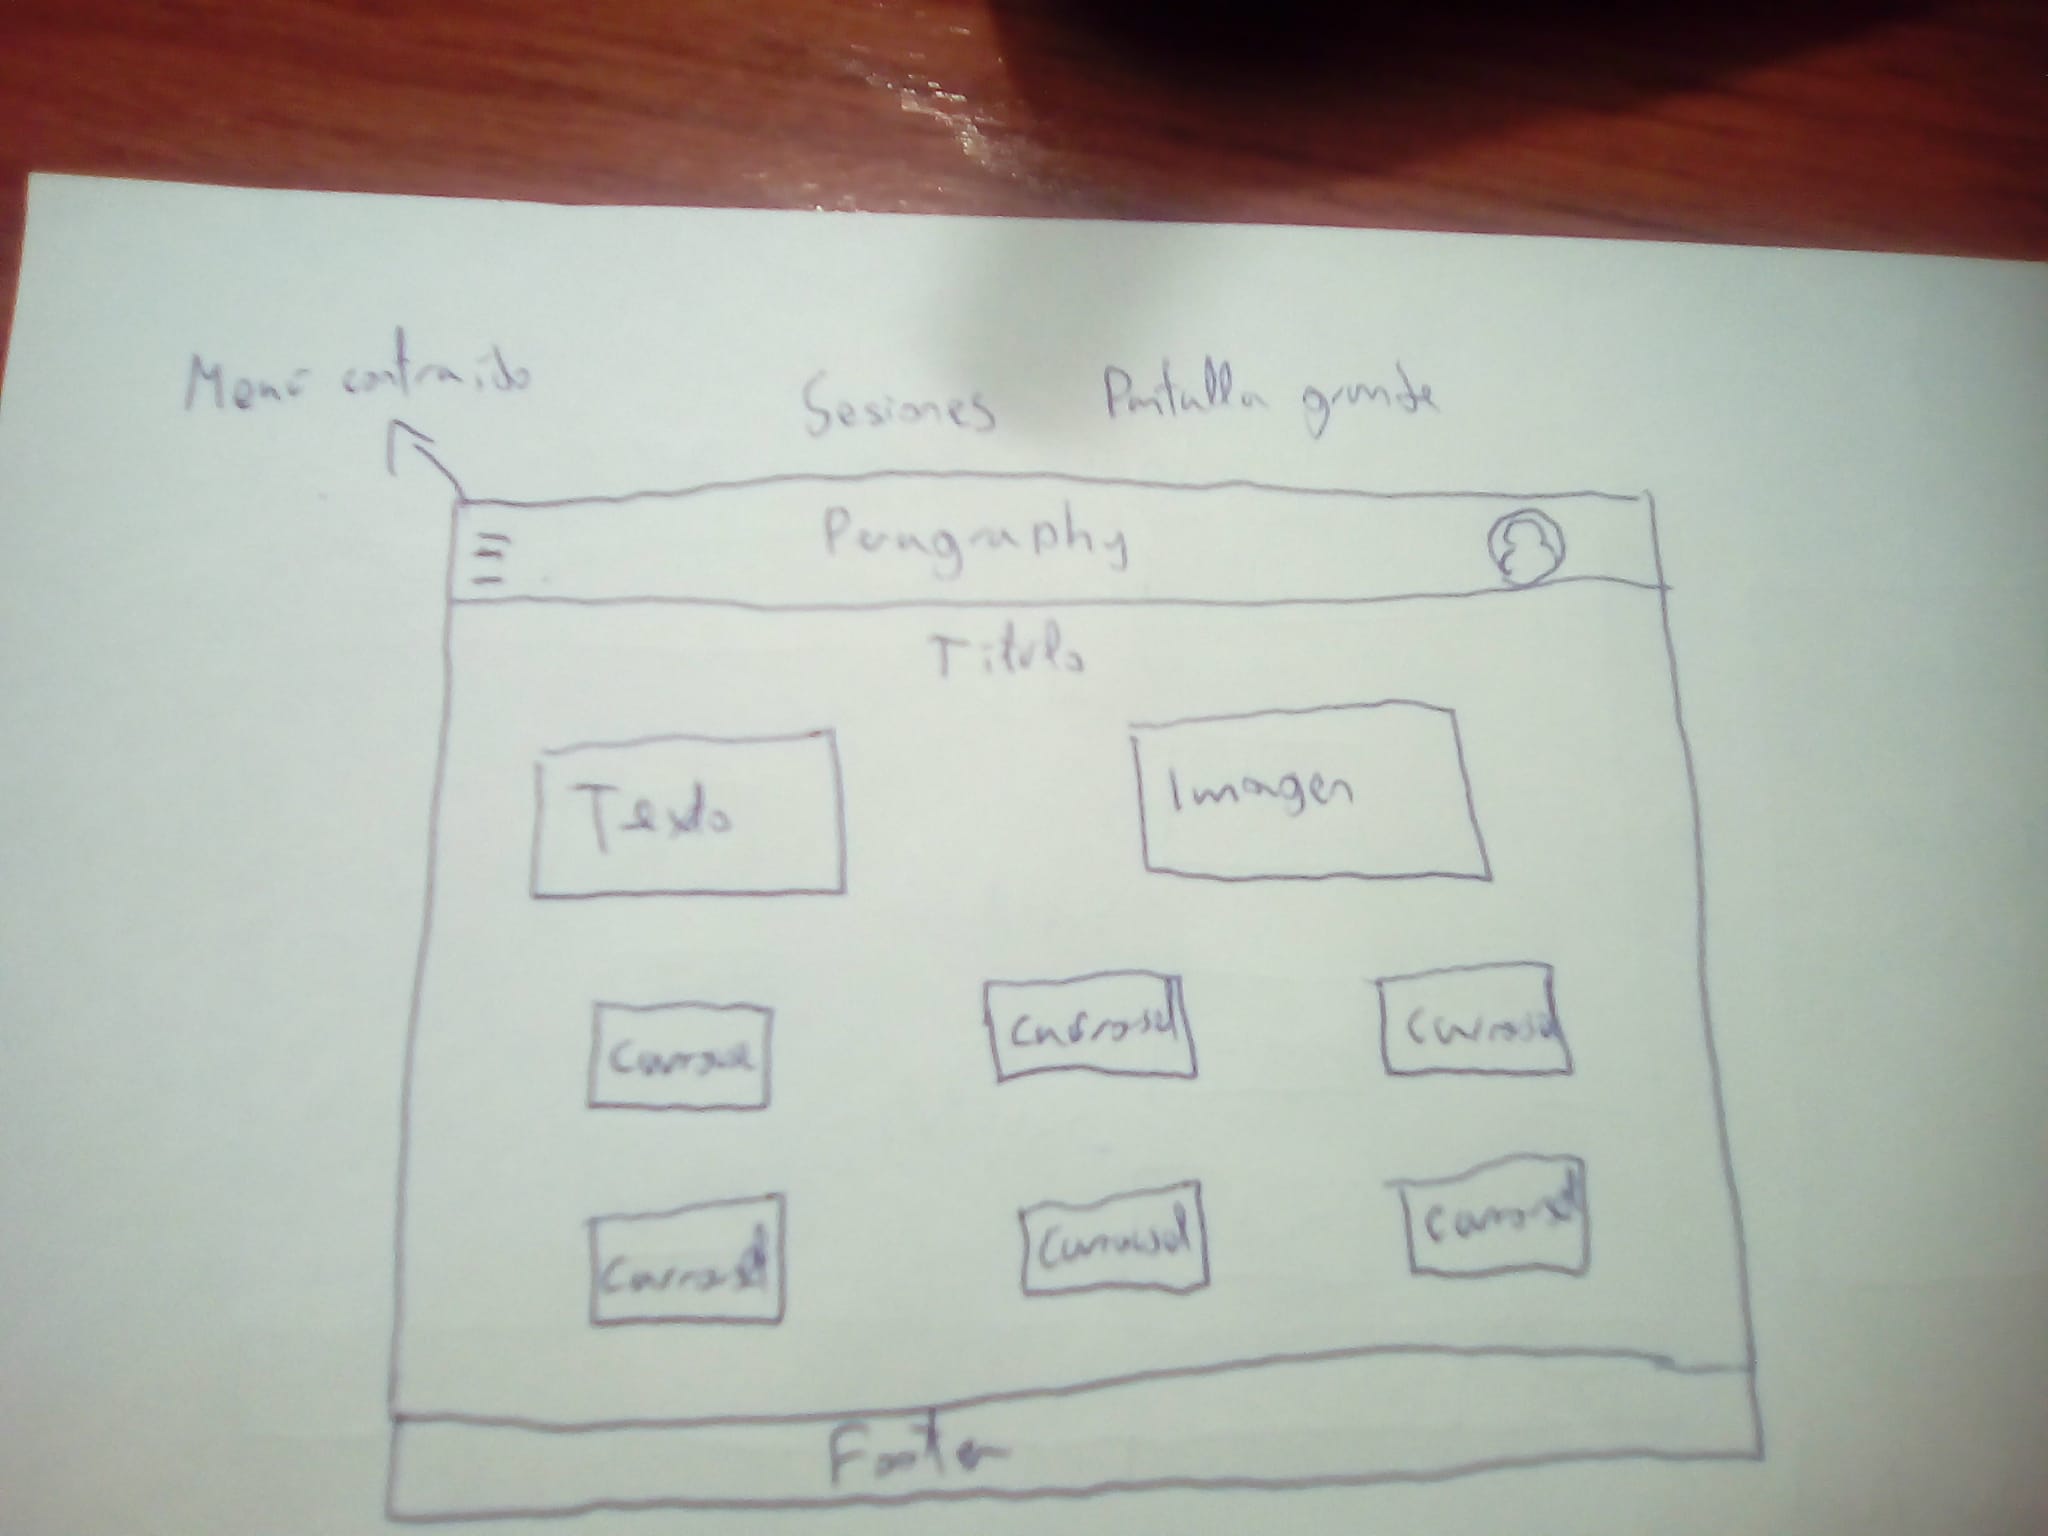 Menú contraido
Sesiones Pantalla grande
Peragraphy
Titulo
Texto Imagen
Carrosel Carrosel Carrosel
Carrosel Carrosel Carrosel
Footer